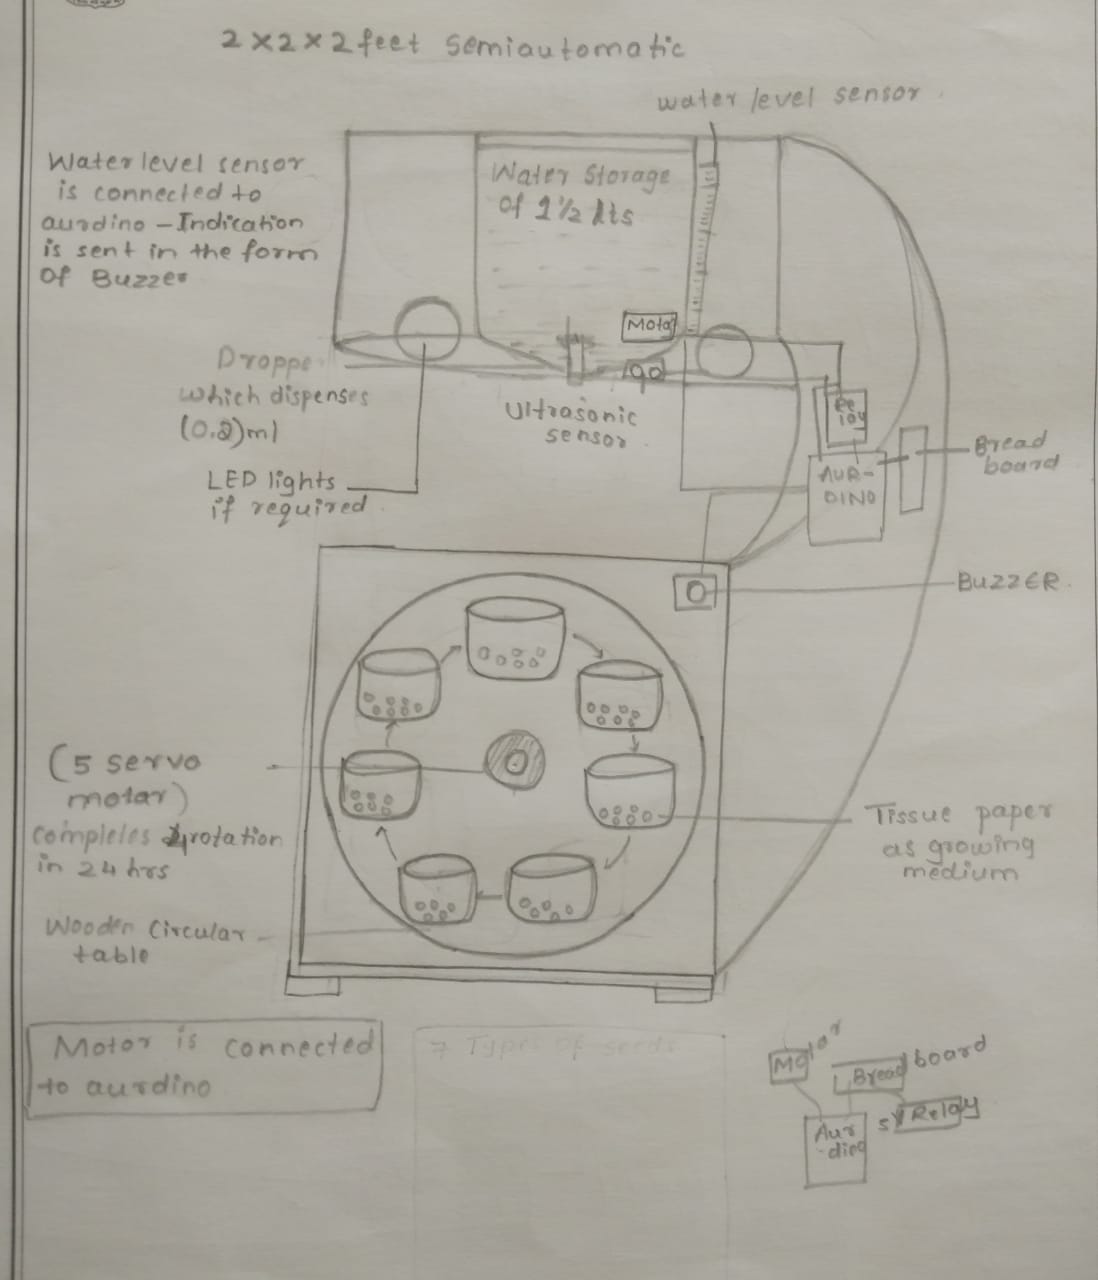 2x2x2 feet semiautomatic
water level sensor
Water level sensor
is connected to
aurdino - Indication
is sent in the form
of Buzzer
Water Storage
of 1½ lts
Motor
Droppe
which dispenses
(0.2)ml
Ultrasonic
sensor
LED lights
if required
Re
lay
AUR-
DINO
Bread
board
BUZZER
(5 servo
motar)
completes 1 rotation
in 24 hrs
Tissue paper
as growing
medium
Wooden Circular
table
Motor is connected
to aurdino
7 Types of seeds
Motor
Bread board
5V Relay
Aur
-dino